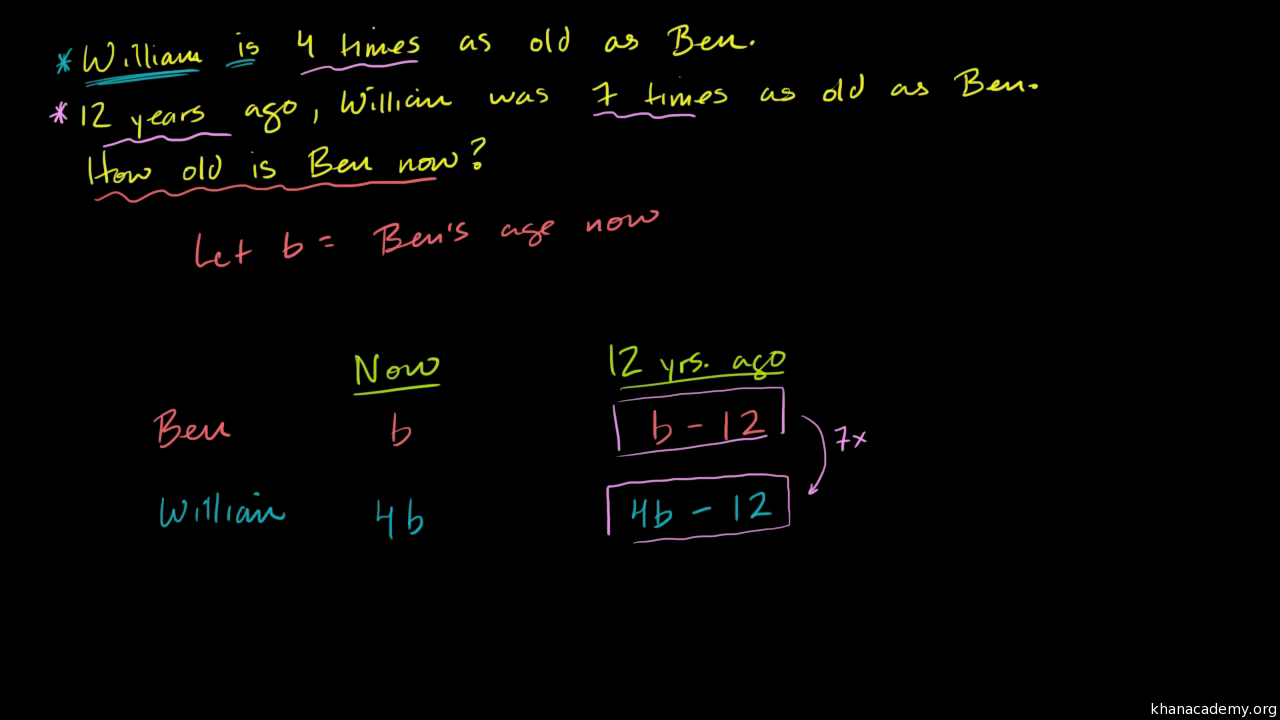 * William is 4 times as old as Ben.
* 12 years ago, William was 7 times as old as Ben.
How old is Ben now?
Let b = Ben's age now
Now 12 yrs. ago
Ben b b - 12
7x
William 4b 4b - 12
khanacademy.org